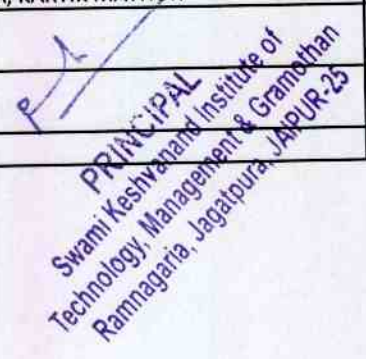 PRINCIPAL
Swami Keshvanand Institute of
Technology, Management & Gramothan
Ramnagaria, Jagatpura, JAIPUR-25